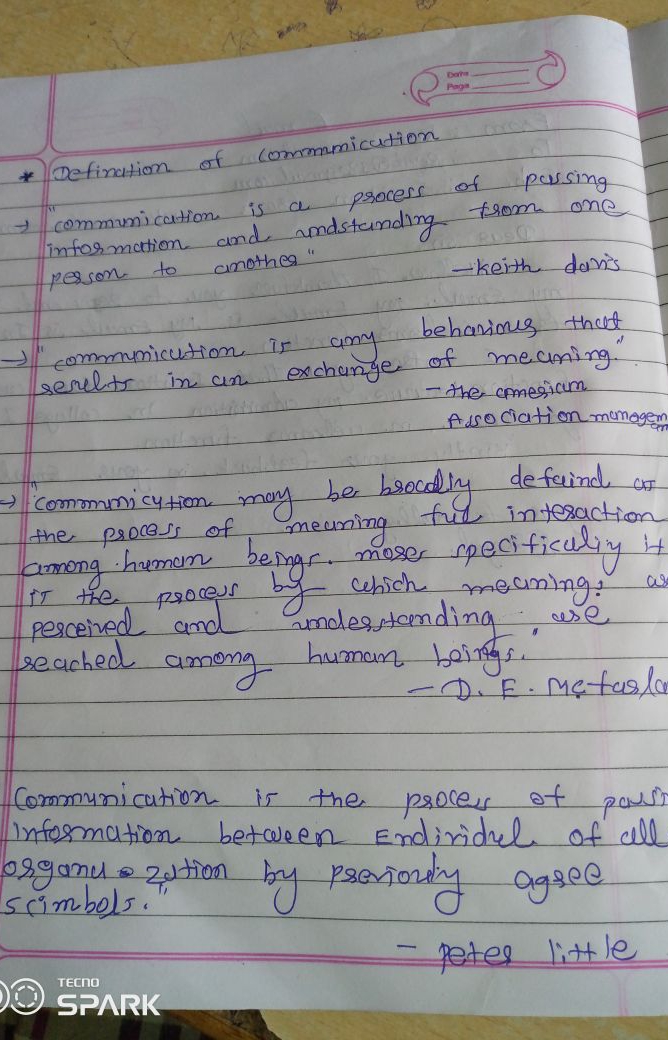 Date
Page
* Defination of Commmication
→ "communication is a process of passing
information and undstanding from one
person to another"
- Keith davis
→ "communication is any behavious that
results in an exchange of meaning."
- the amesican
Association managem
→ "communication may be broadly defaind as
the process of meaning ful interaction
among human beings. more specificuliy it
is the process by which meanings are
perceived and understanding are
reached among human beings."
- D. E. Mcfarla
Communication is the process of passi
information between Endividul of all
organu zation by previously agree
scimbols."
- peter little
TECNO
SPARK